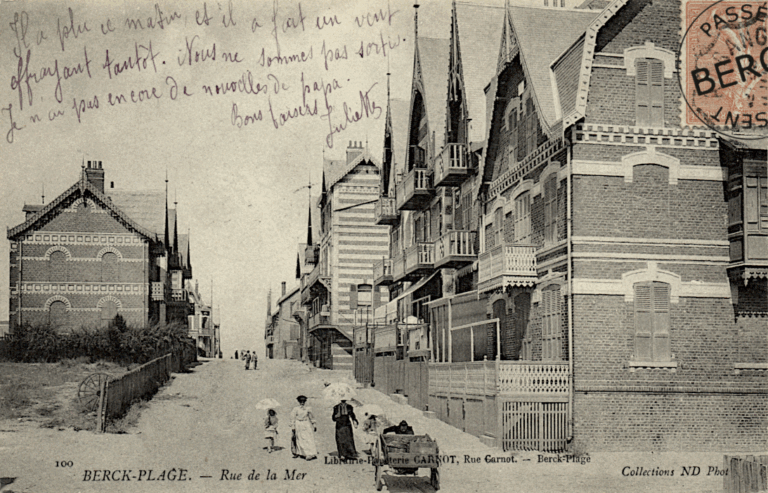 Il a plu ce matin, et il a fait un vent
effrayant tantôt. Nous ne sommes pas sortis.
Je n'ai pas encore de nouvelles de papa.
Bons baisers Juliette
PASSE
BERC
100
BERCK-PLAGE. — Rue de la Mer
Librairie-Papeterie CARNOT, Rue Carnot. — Berck-Plage
Collections ND Phot